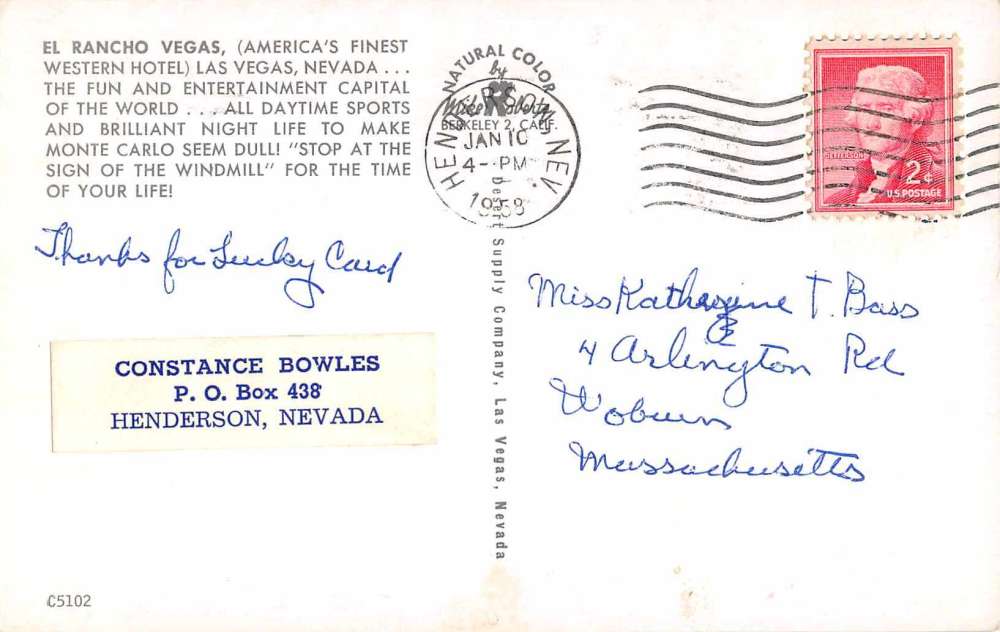 EL RANCHO VEGAS, (AMERICA'S FINEST
WESTERN HOTEL) LAS VEGAS, NEVADA ...
THE FUN AND ENTERTAINMENT CAPITAL
OF THE WORLD ... ALL DAYTIME SPORTS
AND BRILLIANT NIGHT LIFE TO MAKE
MONTE CARLO SEEM DULL! "STOP AT THE
SIGN OF THE WINDMILL" FOR THE TIME
OF YOUR LIFE!
Thanks for Lucky Card
CONSTANCE BOWLES
P. O. Box 438
HENDERSON, NEVADA
C5102
NATURAL COLOR
by
Mike Roberts
BERKELEY 2, CALIF.
HENDERSON NEV.
JAN 10
4-PM
1958
Desert Supply Company, Las Vegas, Nevada
JEFFERSON
2¢
U.S. POSTAGE
Miss Katheryine T. Bass
4 Arlington Rd
Woburn
Massachusetts